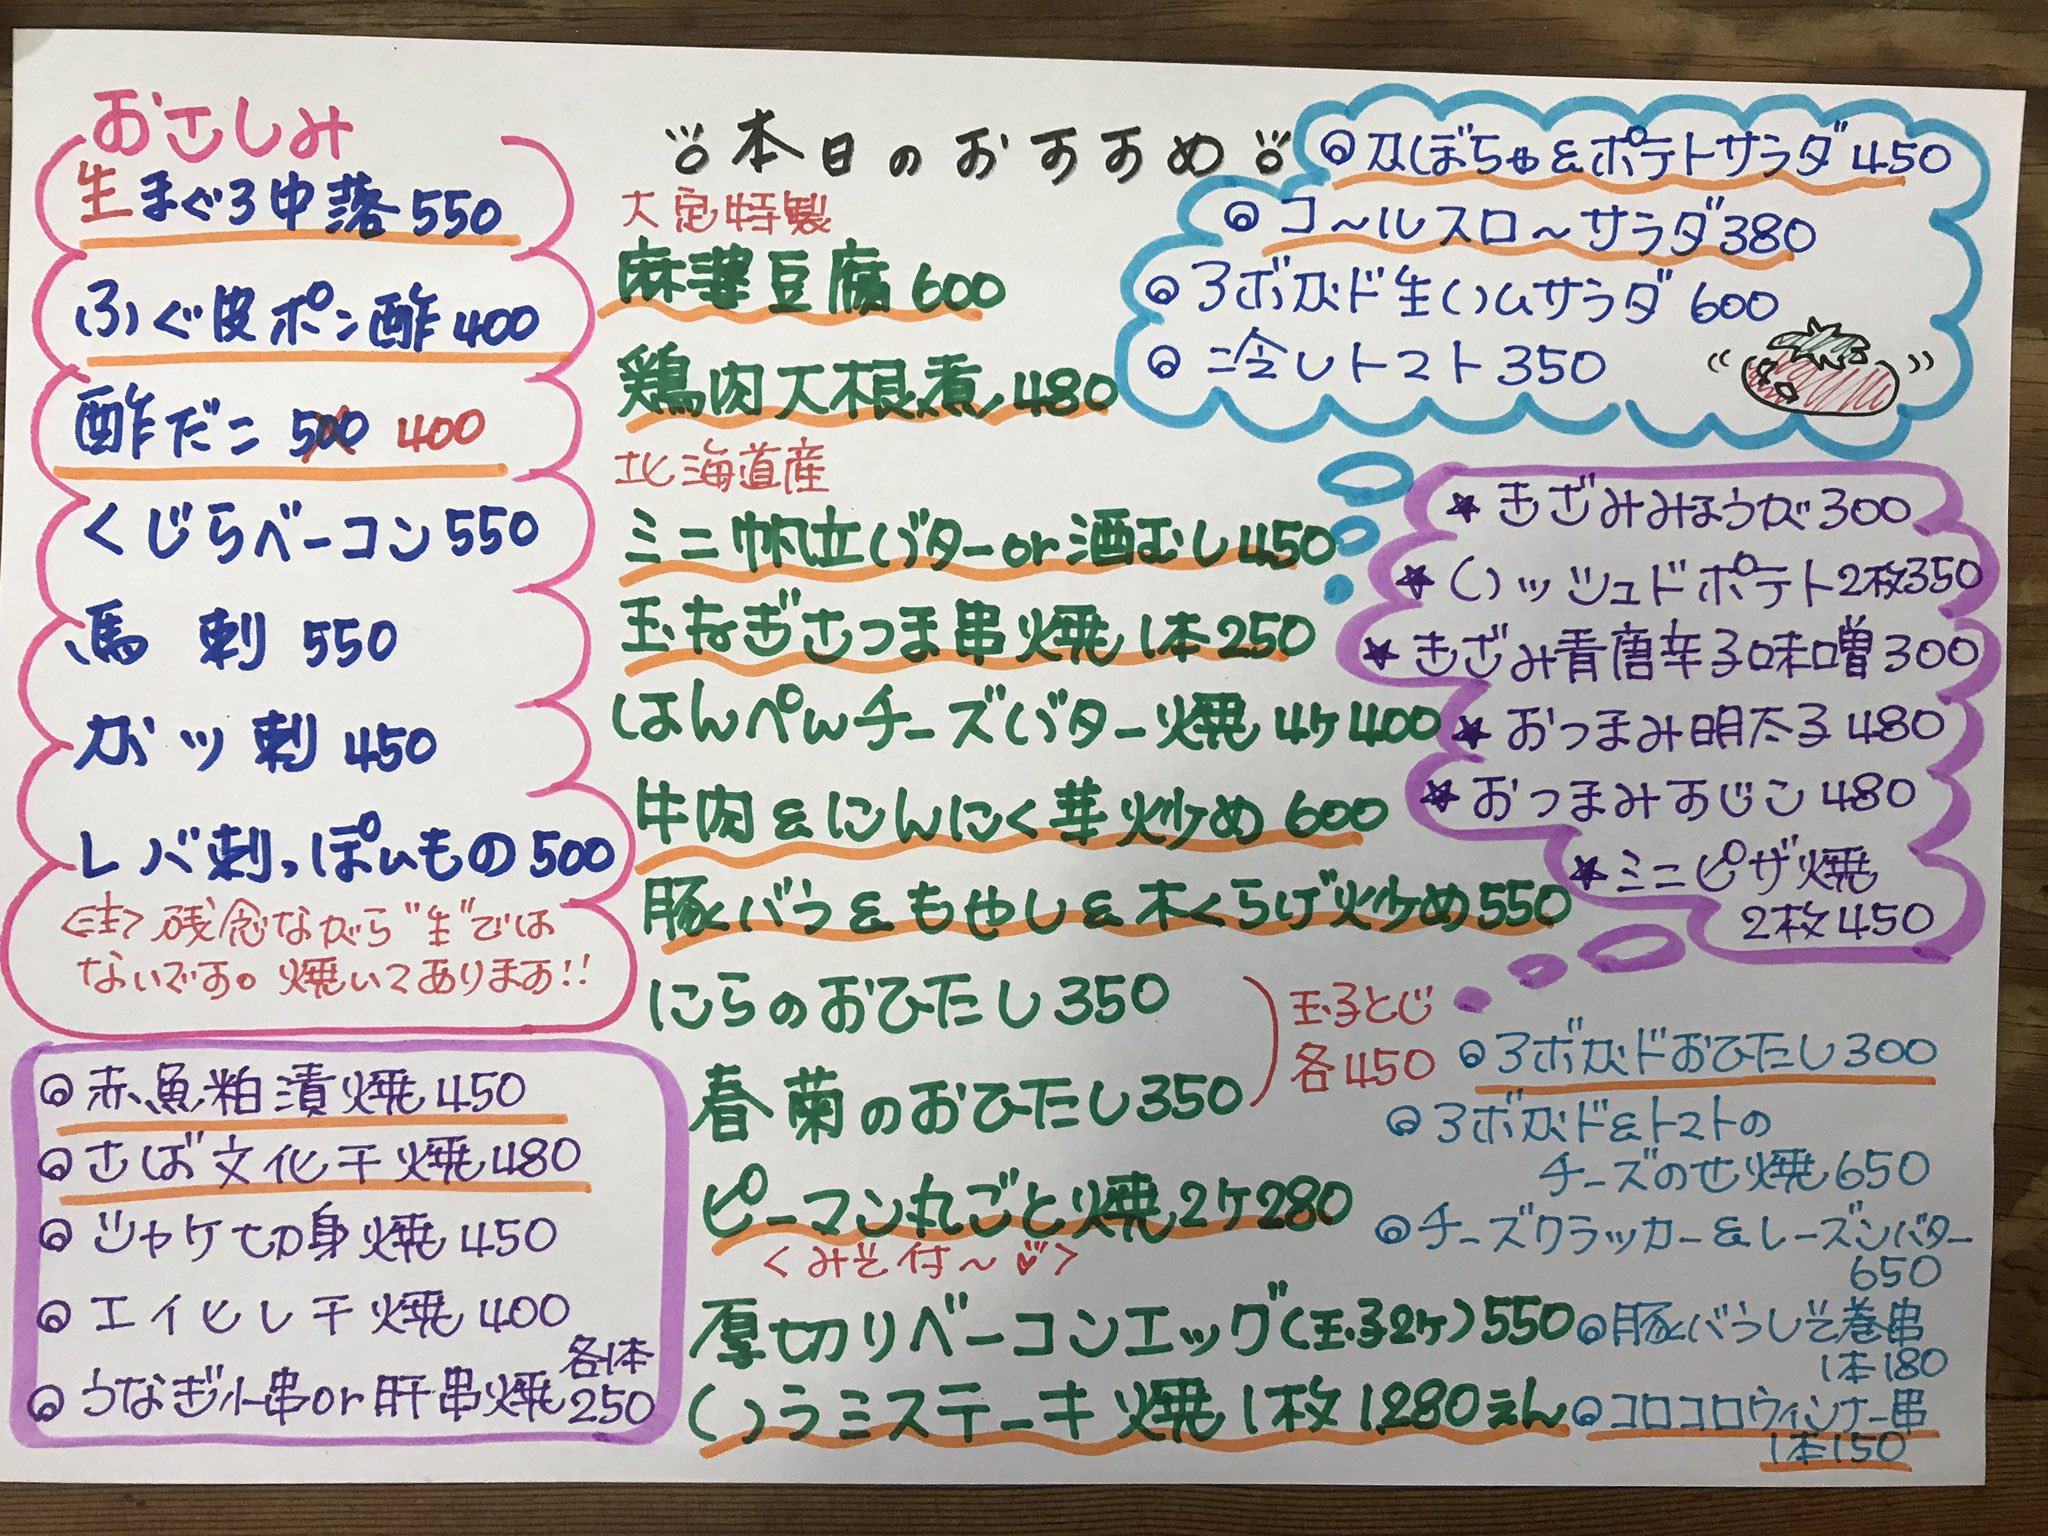 本日のおすすめ
おさしみ
生まぐろ中落550
ふぐ皮ポン酢400
酢だこ 500 400
くじらベーコン550
馬刺 550
ガツ刺 450
レバ刺っぽいもの500
<注>残念ながら"生"では
ないです。焼いてあります!!
◎赤魚粕漬焼450
◎さば文化干焼480
◎シャケ切身焼450
◎エイヒレ干焼400
◎うなぎ小串or肝串焼 各1本250
大定特製
麻婆豆腐600
鶏肉大根煮480
北海道産
ミニ帆立バターor酒むし450
玉ねぎさつま串焼1本250
はんぺんチーズバター焼4ケ400
牛肉&にんにく芽炒め600
豚バラ&もやし&木くらげ炒め550
にらのおひたし350
春菊のおひたし350
玉子とじ
各450
ピーマン丸ごと焼2ケ280
<みそ付〜♡>
厚切りベーコンエッグ(玉子2ケ)550
ハラミステーキ焼1枚1,280えん
◎かぼちゃ&ポテトサラダ450
◎コ〜ルスロ〜サラダ380
◎アボカド生ハムサラダ600
◎冷しトマト350
★きざみみょうが300
★ハッシュドポテト2枚350
★きざみ青唐辛子味噌300
★おつまみ明太子480
★おつまみすじこ480
★ミニピザ焼
2枚450
◎アボカドおひたし300
◎アボカド&トマトの
チーズのせ焼650
◎チーズクラッカー&レーズンバター
650
◎豚バラしそ巻串
1本180
◎コロコロウィンナー串
1本150